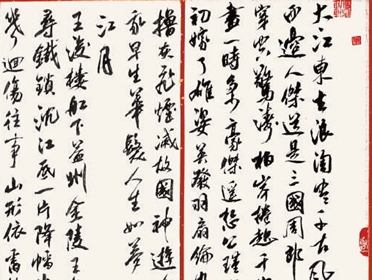 大江東去浪淘盡千古風
西邊人傑道是三國周郎
穿空驚濤拍岸捲起千
畫一時多豪傑遙想公瑾
初嫁了雄姿英發羽扇綸
櫓灰飛煙滅故國神遊
我早生華髮人生如夢
江月
王濬樓船下益州金陵王
尋鐵鎖沉江底一片降幡
幾迴傷往事山形依舊